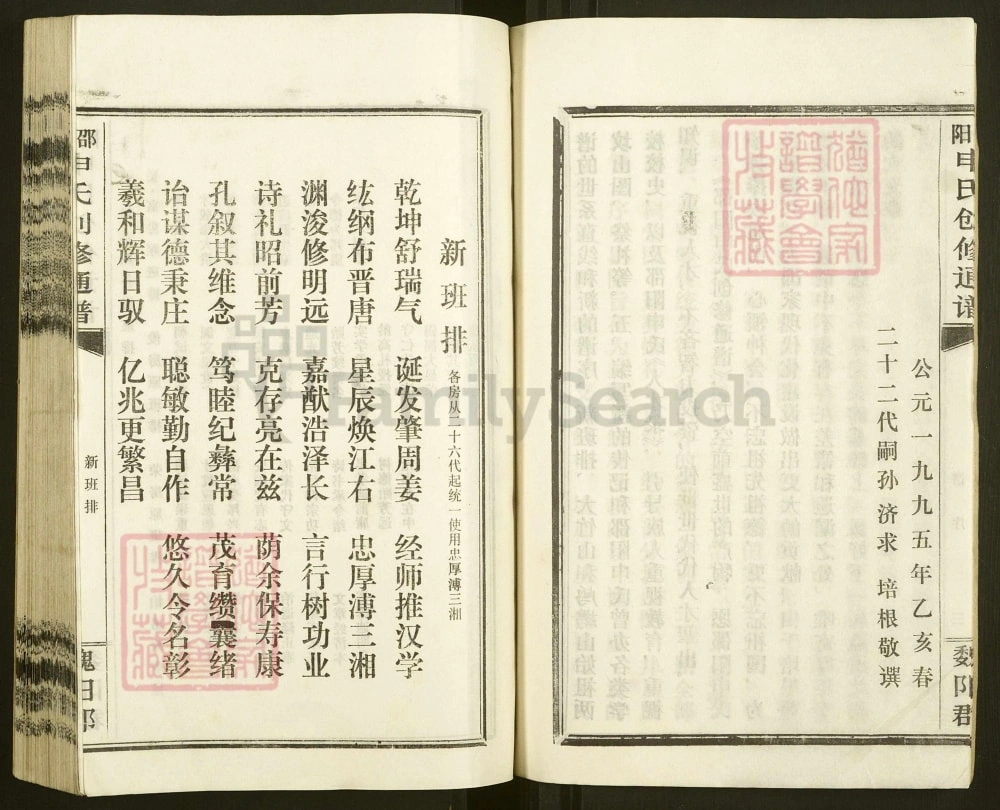 阳申氏创修通谱
魏阳郡
公元一九九五年乙亥春
二十二代嗣孙济求 培根敬選
新班排 各房从二十六代起统一使用忠厚溥三湘
乾坤舒瑞气 诞发肇周姜 经师推汉学
纮纲布晋唐 星辰焕江右 忠厚溥三湘
渊浚修明远 嘉猷浩泽长 言行树功业
诗礼昭前芳 克存亮在兹 荫余保寿康
孔叙其维念 笃睦纪彝常 茂育缵襄绪
诒谋德秉庄 聪敏勤自作 悠久令名彰
羲和辉日驭 亿兆更繁昌
邵申氏创修通谱
新班排
魏阳郡
FamilySearch